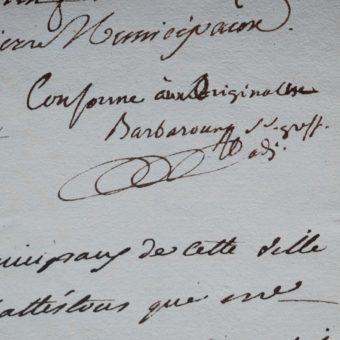 Municipation.
Conforme aux Originalux
Barbaroux ss. greff.
adj.
nicipaux de cette Ville
attestons que